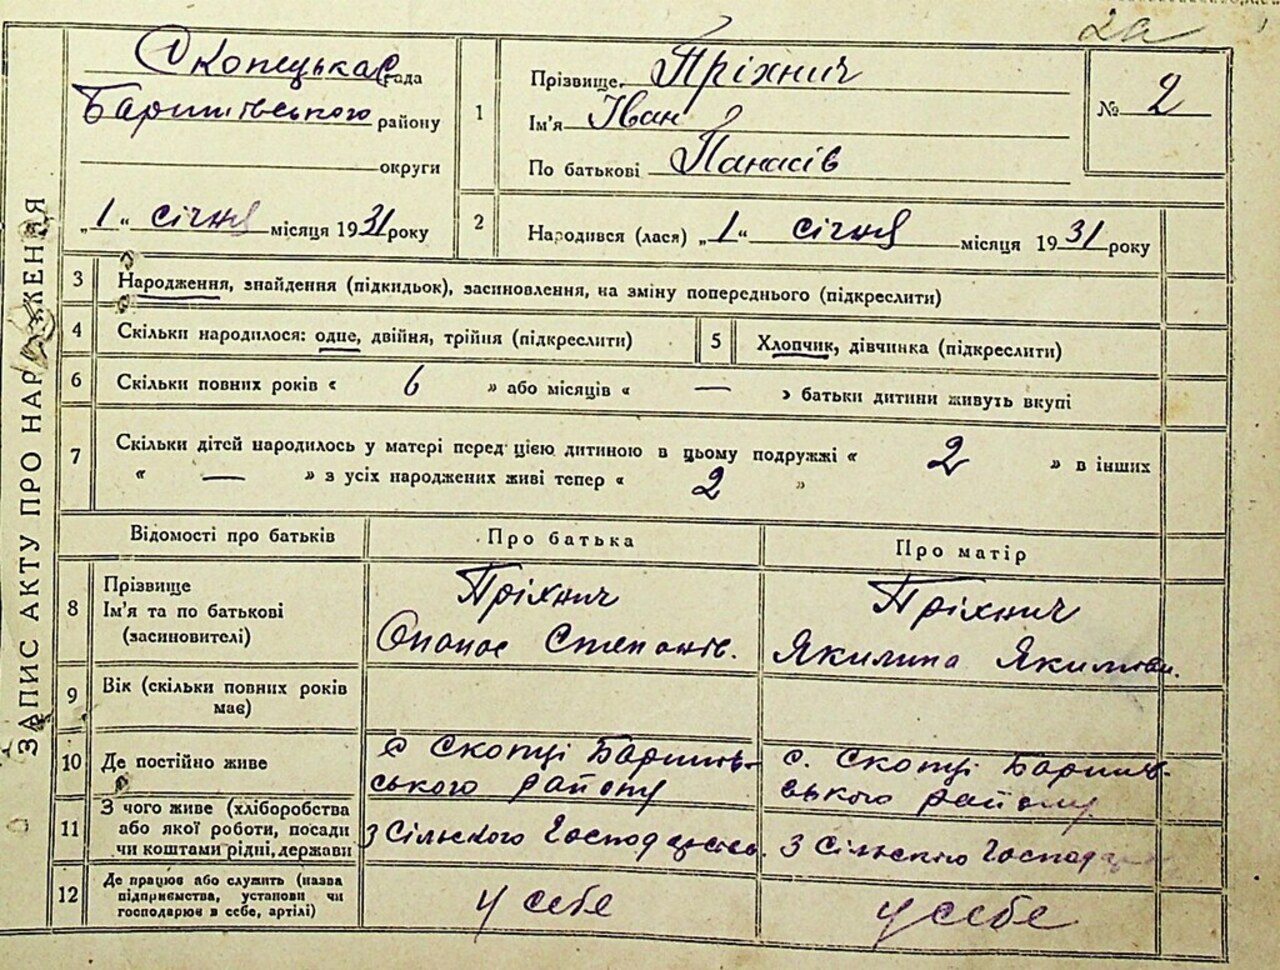 2а
ЗАПИС АКТУ ПРО НАРОДЖЕННЯ
Скопецька рада
Баришівського району
округи
„1“ січня місяця 1931 року
1
Прізвище Пріхнич
Ім'я Іван
По батькові Панасів
№ 2
2
Народився (лася) „1“ січня місяця 1931 року
3 Народження, знайдення (підкидьок), засиновлення, на зміну попереднього (підкреслити)
4 Скільки народилося: одне, двійня, трійня (підкреслити)
5 Хлопчик, дівчинка (підкреслити)
6 Скільки повних років « 6 » або місяців « — » батьки дитини живуть вкупі
7 Скільки дітей народилось у матері перед цією дитиною в цьому подружжі « 2 » в інших
« — » з усіх народжених живі тепер « 2 »
Відомості про батьків
Про батька
Про матір
8
Прізвище
Ім'я та по батькові
(засиновителі)
Пріхнич
Опанас Степанів.
Пріхнич
Якилина Якимівн.
9
Вік (скільки повних років
має)
10 Де постійно живе
с Скопці Баришів-
ського району
с. Скопці Баришів-
ського району
11
З чого живе (хліборобства
або якої роботи, посади
чи коштами рідні, держави
З Сільского Господарства.
З Сільскіго
12
Де працює або служить (назва
підприємства, установи чи
господарює в себе, артілі)
у себе
у себе